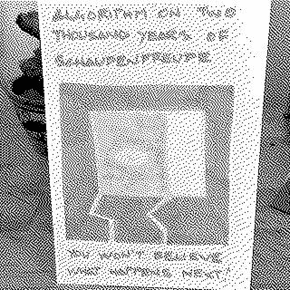 ALGORITHM ON TWO
THOUSAND YEARS OF
SCHADENFREUDE
YOU WON'T BELIEVE
WHAT HAPPENS NEXT!